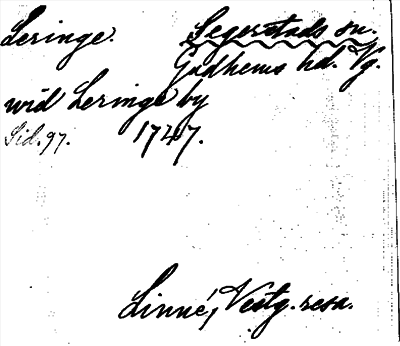 Leringe. Segerstads sn.
Gudhems hd. Vg.
wid Leringe by
Sid. 97. 1747.
Linné, Vestg. resa.